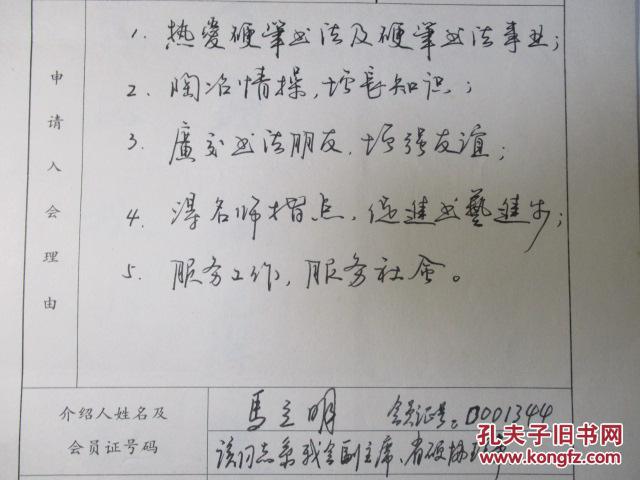 申请入会理由
1. 热爱硬筆书法及硬筆书法事业；
2. 陶冶情操，增長知识；
3. 廣交书法朋友，增强友谊；
4. 得名师指点，促進书藝進步；
5. 服务工作，服务社会。
介绍人姓名及
会员证号码
馬立明 会员证号：0001344
该同志系我会副主席、省硬协
孔夫子旧书网
www.kongfz.com